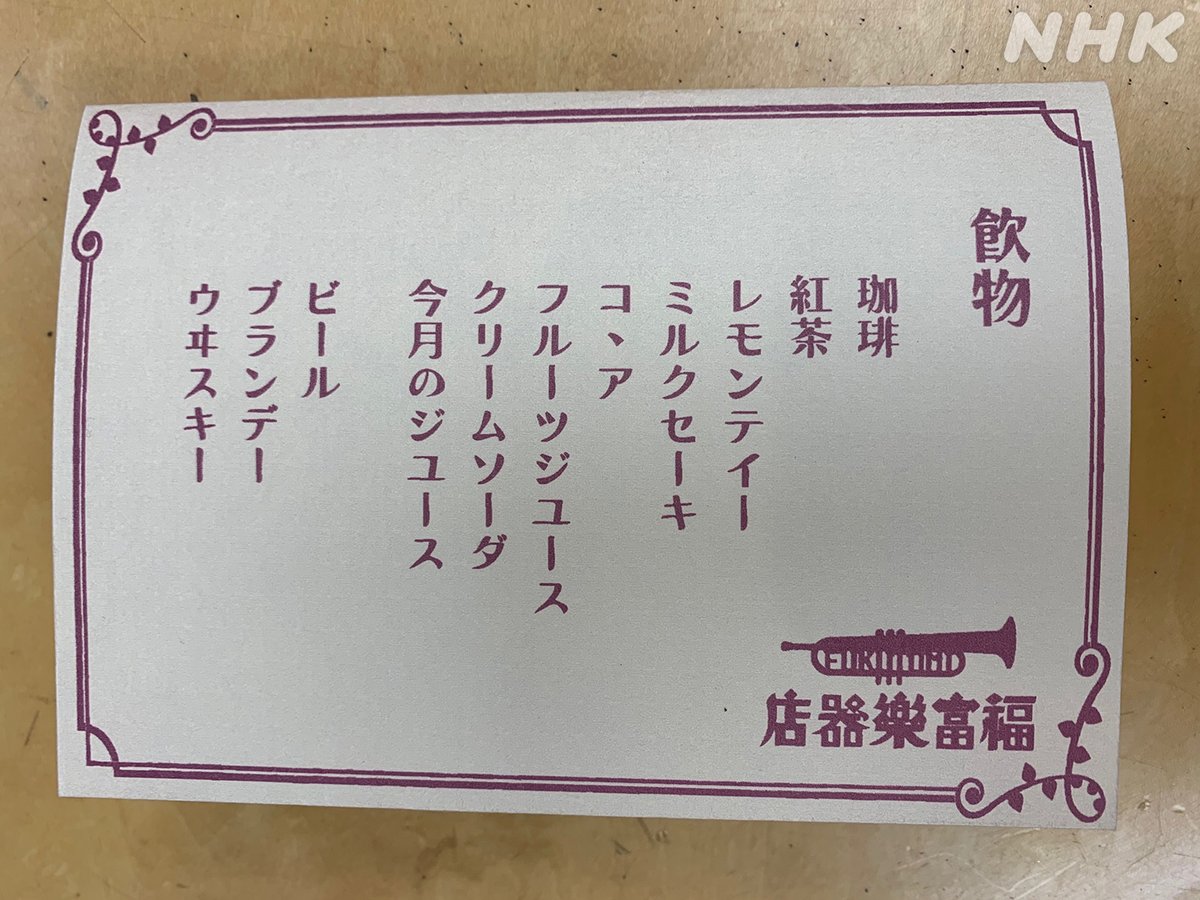 NHK
飲物
珈琲
紅茶
レモンテイー
ミルクセーキ
コヽア
フルーツジユース
クリームソーダ
今月のジユース
ビール
ブランデー
ウヰスキー
FUKUTOMI
店器樂富福